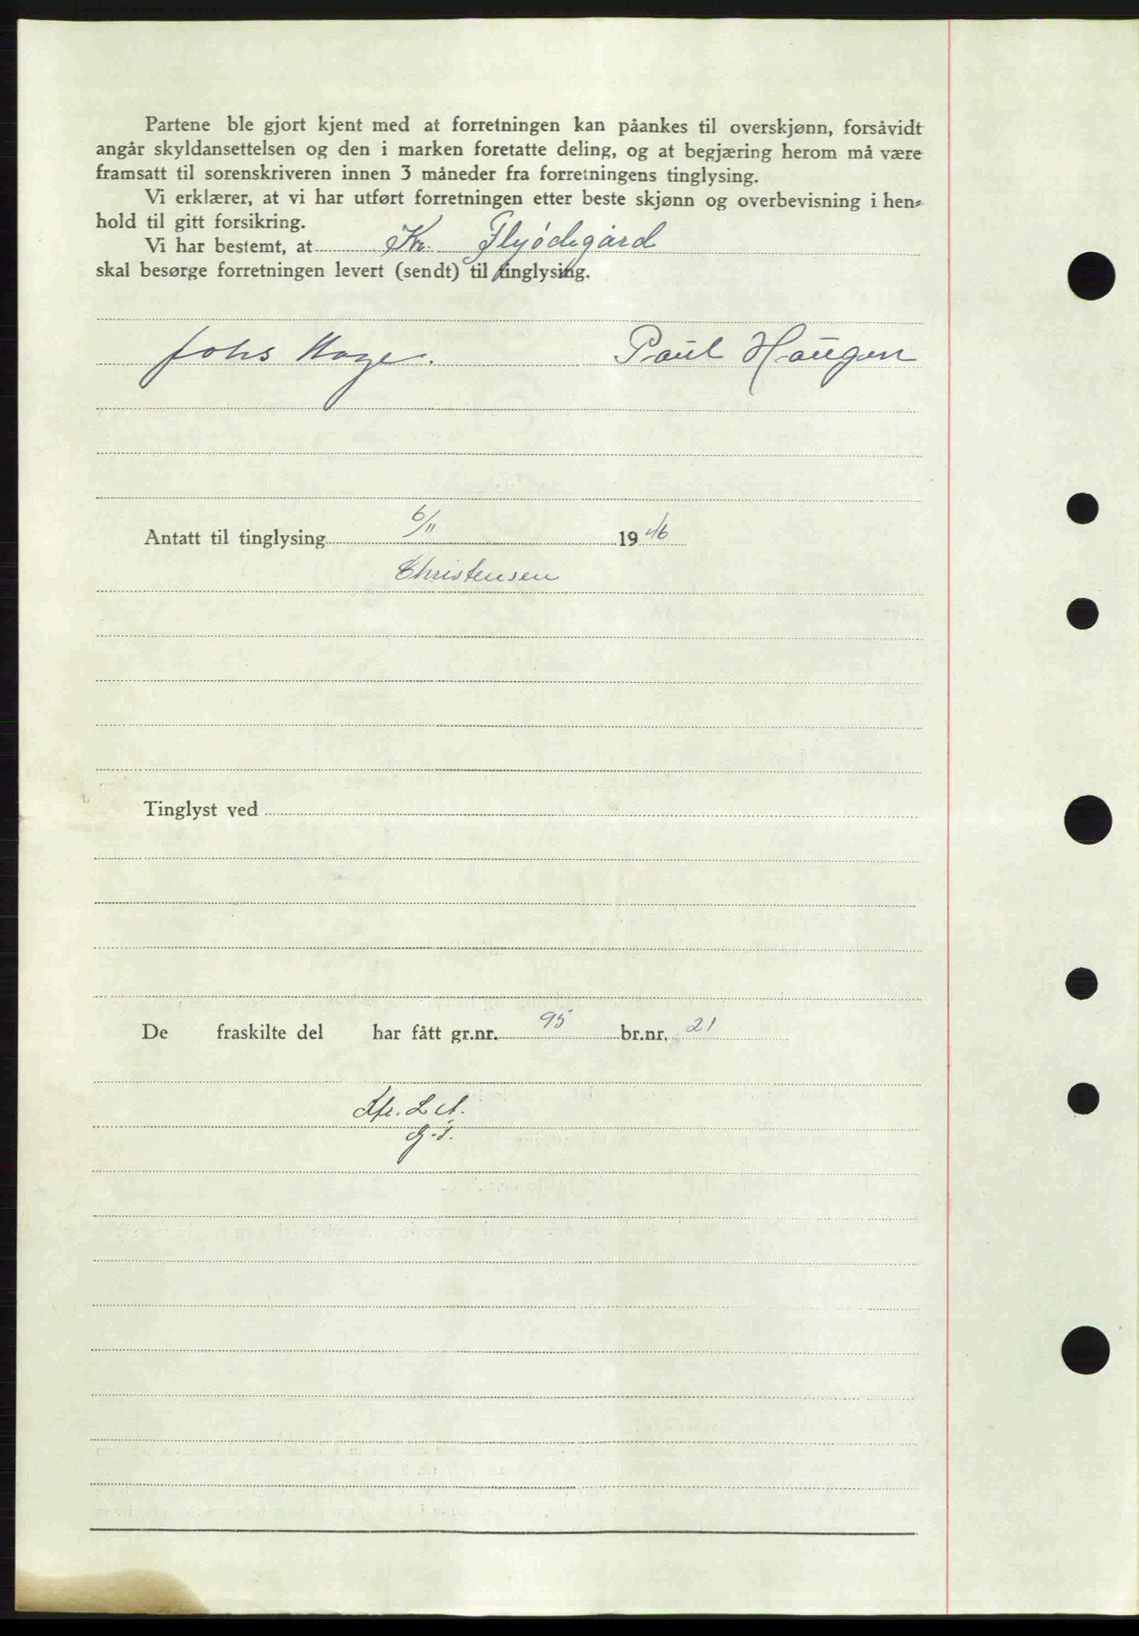 Partene ble gjort kjent med at forretningen kan påankes til overskjønn, forsåvidt
angår skyldansettelsen og den i marken foretatte deling, og at begjæring herom må være
framsatt til sorenskriveren innen 3 måneder fra forretningens tinglysing.
Vi erklærer, at vi har utført forretningen etter beste skjønn og overbevisning i hen-
hold til gitt forsikring.
Vi har bestemt, at Kr. Flyødegård
skal besørge forretningen levert (sendt) til tinglysing.
Johs Paul Haugen
6/11
Antatt til tinglysing 1946
Christensen
Tinglyst ved
De fraskilte del har fått gr.nr. 95 br.nr. 21